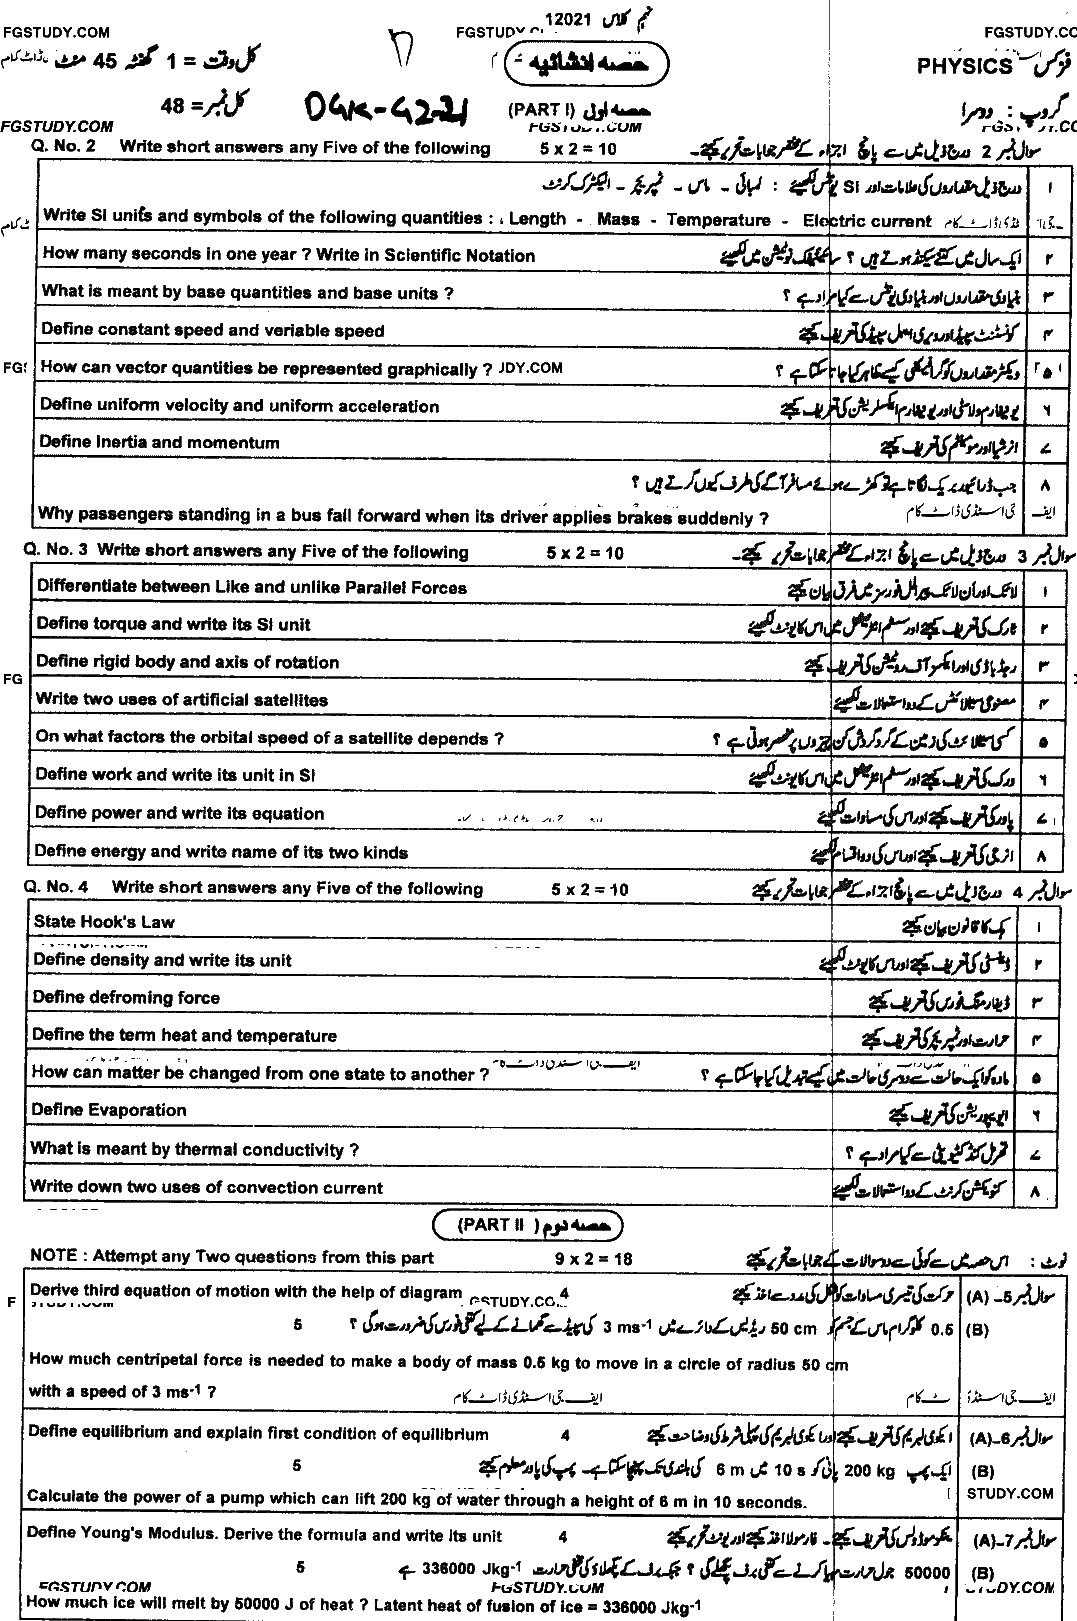 نہم کلاس 12021
FGSTUDY.COM
FGSTUDY.COM
کل وقت = 1 گھنٹہ 45 منٹ
حصہ انشائیہ
PHYSICS فزکس
کل نمبر = 48
DGK-G2-21
(PART I) حصہ اول
گروپ : دوسرا
FGSTUDY.COM
FGSTUDY.COM
Q. No. 2 Write short answers any Five of the following 5 x 2 = 10 سوال نمبر 2 درج ذیل میں سے پانچ اجزاء کے مختصر جوابات تحریر کیجئے۔
۱ درج ذیل مقداروں کی علامات اور SI یونٹس لکھیئے : لمبائی - ماس - ٹمپریچر - الیکٹرک کرنٹ
Write SI units and symbols of the following quantities : Length - Mass - Temperature - Electric current
How many seconds in one year ? Write in Scientific Notation ایک سال میں کتنے سیکنڈ ہوتے ہیں ؟ سائنٹیفک نوٹیشن میں لکھیئے ۲
What is meant by base quantities and base units ? بنیادی مقداروں اور بنیادی یونٹس سے کیا مراد ہے ؟ ۳
Define constant speed and veriable speed کونسٹنٹ سپیڈ اور ویری ایبل سپیڈ کی تعریف کیجئے ۴
FG How can vector quantities be represented graphically ? JDY.COM ویکٹر مقداروں کو گرافیکلی کیسے ظاہر کیا جا سکتا ہے ؟ ۵
Define uniform velocity and uniform acceleration یونیفارم ولاسٹی اور یونیفارم ایکسلریشن کی تعریف کیجئے ۶
Define Inertia and momentum انرشیا اور مومینٹم کی تعریف کیجئے ۷
۸ جب ڈرائیور بریک لگاتا ہے تو کھڑے ہوئے مسافر آگے کی طرف کیوں گرتے ہیں ؟
Why passengers standing in a bus fall forward when its driver applies brakes suddenly ? ایف جی اسٹڈی ڈاٹ کام
Q. No. 3 Write short answers any Five of the following 5 x 2 = 10 سوال نمبر 3 درج ذیل میں سے پانچ اجزاء کے مختصر جوابات تحریر کیجئے۔
Differentiate between Like and unlike Parallel Forces لائک اور اَن لائک پیرالل فورسز میں فرق بیان کیجئے ۱
Define torque and write its SI unit ٹارک کی تعریف کیجئے اور سسٹم انٹرنیشنل میں اس کا یونٹ لکھیئے ۲
Define rigid body and axis of rotation رجڈ باڈی اور ایکسز آف روٹیشن کی تعریف کیجئے ۳
FG Write two uses of artificial satellites مصنوعی سیٹلائٹس کے دو استعمالات لکھیئے ۴
On what factors the orbital speed of a satellite depends ? کسی سیٹلائٹ کی زمین کے گرد گردش کن چیزوں پر منحصر ہوتی ہے ؟ ۵
Define work and write its unit in SI ورک کی تعریف کیجئے اور سسٹم انٹرنیشنل میں اس کا یونٹ لکھیئے ۶
Define power and write its equation پاور کی تعریف کیجئے اور اس کی مساوات لکھیئے ۷
Define energy and write name of its two kinds انرجی کی تعریف کیجئے اور اس کی دو اقسام لکھیئے ۸
Q. No. 4 Write short answers any Five of the following 5 x 2 = 10 سوال نمبر 4 درج ذیل میں سے پانچ اجزاء کے مختصر جوابات تحریر کیجئے
State Hook's Law ہک کا قانون بیان کیجئے ۱
Define density and write its unit ڈینسٹی کی تعریف کیجئے اور اس کا یونٹ لکھیئے ۲
Define defroming force ڈیفارمنگ فورس کی تعریف کیجئے ۳
Define the term heat and temperature حرارت اور ٹمپریچر کی تعریف کیجئے ۴
How can matter be changed from one state to another ? ایف جی اسٹڈی ڈاٹ کام مادہ کو ایک حالت سے دوسری حالت میں کیسے تبدیل کیا جا سکتا ہے ؟ ۵
Define Evaporation ایویپوریشن کی تعریف کیجئے ۶
What is meant by thermal conductivity ? تھرمل کنڈکٹیویٹی سے کیا مراد ہے ؟ ۷
Write down two uses of convection current کنویکشن کرنٹ کے دو استعمالات لکھیئے ۸
(PART II) حصہ دوم
NOTE : Attempt any Two questions from this part 9 x 2 = 18 نوٹ : اس حصہ میں سے کوئی سے دو سوالات کے جوابات تحریر کیجئے
F Derive third equation of motion with the help of diagram 4 حرکت کی تیسری مساوات کو شکل کی مدد سے اخذ کیجئے (A) سوال نمبر 5-
GSTUDY.CO
5 0.5 کلوگرام ماس کے جسم کو 50 cm ریڈیس کے دائرے میں 3 ms-1 کی سپیڈ سے گھمانے کے لیے کتنی فورس کی ضرورت ہوگی ؟ (B)
How much centripetal force is needed to make a body of mass 0.5 kg to move in a circle of radius 50 cm
with a speed of 3 ms-1 ? ایف جی اسٹڈی ڈاٹ کام
Define equilibrium and explain first condition of equilibrium 4 ایکوی لبریم کی تعریف کیجئے اور ایکوی لبریم کی پہلی شرط کی وضاحت کیجئے (A) سوال نمبر 6-
5 ایک پمپ 200 kg پانی کو 10 s میں 6 m کی بلندی تک پہنچا سکتا ہے۔ پمپ کی پاور معلوم کیجئے (B)
Calculate the power of a pump which can lift 200 kg of water through a height of 6 m in 10 seconds. STUDY.COM
Define Young's Modulus. Derive the formula and write its unit 4 ینگز موڈولس کی تعریف کیجئے۔ فارمولا اخذ کیجئے اور یونٹ تحریر کیجئے (A) سوال نمبر 7-
5 50000 جول حرارت مہیا کرنے سے کتنی برف پگھلے گی ؟ جبکہ برف کے پگھلاؤ کی مخفی حرارت 336000 Jkg-1 ہے (B)
FGSTUDY.COM FGSTUDY.COM DY.COM
How much ice will melt by 50000 J of heat ? Latent heat of fusion of ice = 336000 Jkg-1